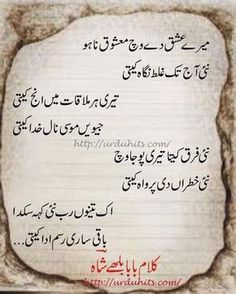 میرے عشق دے وچ معشوق نا ہو
نئی آج تک غلط نگاہ کیتی
تیری ہر ملاقات میں انج کیتی
جیویں موسیٰ نال خدا کیتی
http://urduhits.com/
نئی فرق کیتا تیری پوجا وچ
نئی خطراں دی پرواہ کیتی
اک تینوں رب نئی کہہ سکدا
باقی ساری رسم ادا کیتی...
کلام بابا بلھے شاہ
http://urduhits.com/